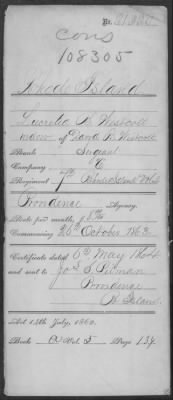 Cons
108305
Rhode Island
Lucretia R. Westcott
widow of David R. Westcott
Rank Sergeant
Company C
Regiment 7th Rhode Island Vols
Providence Agency.
Rate per month, $8
Commencing 26th October 1863
Certificate dated 6th May 1864
and sent to Jos S. Pitman
Providence
R. Island.
Act 14th July, 1862.
Book Vol. 5 Page 134